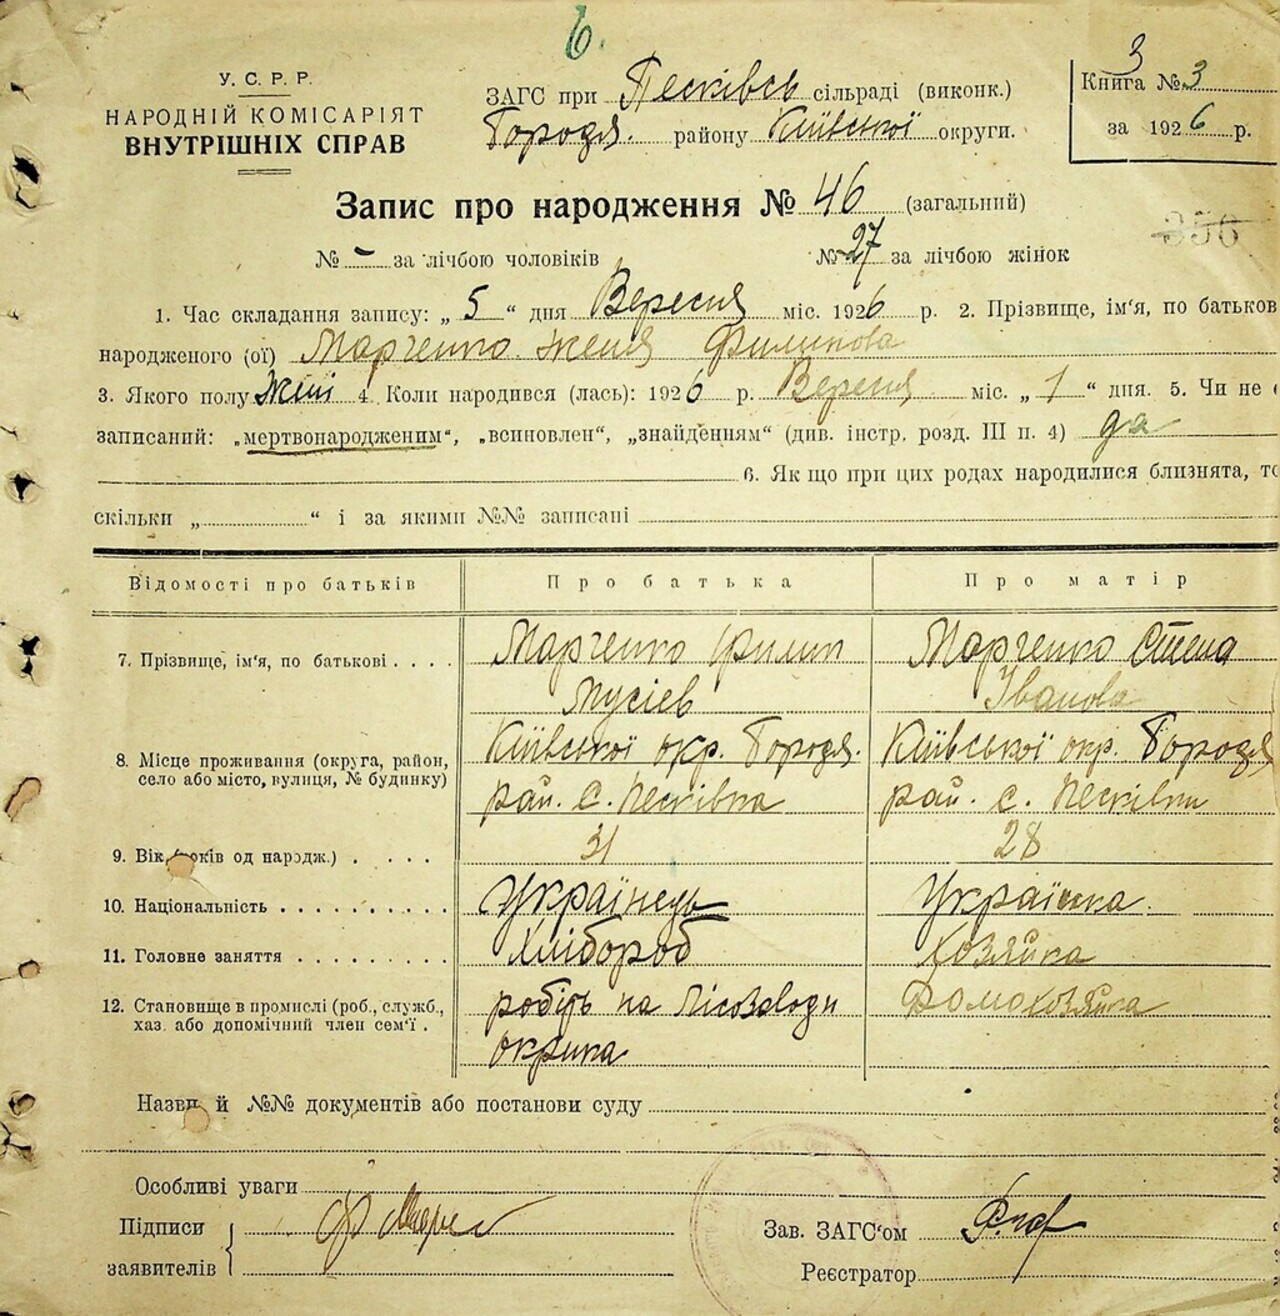 6.
У.С.Р.Р.
НАРОДНІЙ КОМІСАРІЯТ
ВНУТРІШНІХ СПРАВ
ЗАГС при Песківсь сільраді (виконк.)
Городя. району Київської округи.
3
Книга № 3
за 1926 р.
Запис про народження № 46 (загальний)
№ - за лічбою чоловіків № 27 за лічбою жінок
1. Час складання запису: „ 5 “ дня Вересня міс. 1926 р. 2. Прізвище, ім'я, по батьков
народженого (ої) Марченко Женя Филипова
3. Якого полу Жіні 4. Коли народився (лась): 1926 р. Вересня міс. „ 1 “ дня. 5. Чи не
записаний: „мертвонародженим“, „всиновлен“, „знайденням“ (див. інстр. розд. III п. 4) да
6. Як що при цих родах народилися близнята, то
скільки „ “ і за якими №№ записані
Відомості про батьків Про батька Про матір
7. Прізвище, ім'я, по батькові . . . . Марченко Филип Марченко Степа
Мусієв Іванова
8. Місце проживання (округа, район, Київської окр. Городя. Київської окр. Городя
село або місто, вулиця, № будинку) рай. с. Песківка рай. с. Песківки
9. Вік (років од народж.) . . . . 31 28
10. Національність . . . . . . . . . . Українець Українка.
11. Головне заняття . . . . . . . . . Хлібороб Хозяйка
12. Становище в промислі (роб., служб., робіть на Лісозаводи Домохозяйка
хаз. або допомічний член сем'ї .
Назви й №№ документів або постанови суду
Особливі уваги
Підписи
заявителів
Зав. ЗАГС'ом
Реєстратор